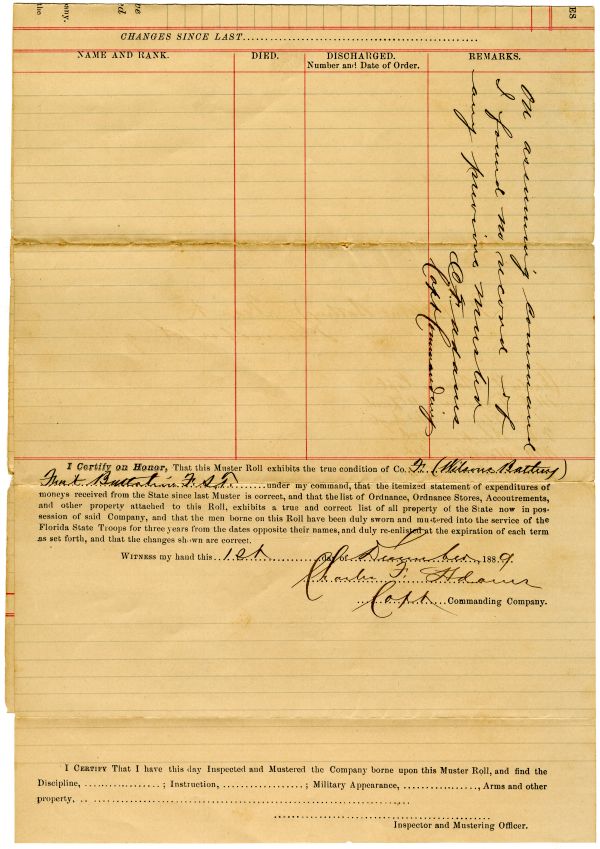 pany.
the
ne
rd
ES
CHANGES SINCE LAST
NAME AND RANK.
DIED.
DISCHARGED.
Number and Date of Order.
REMARKS.
On assuming command
I found no record of
any previous muster
C F Adams
Capt Commanding
I Certify on Honor, That this Muster Roll exhibits the true condition of Co. F. (Wilsons Battery)
First Battalion F.S.T. under my command, that the itemized statement of expenditures of
moneys received from the State since last Muster is correct, and that the list of Ordnance, Ordnance Stores, Accoutrements,
and other property attached to this Roll, exhibits a true and correct list of all property of the State now in pos-
session of said Company, and that the men borne on this Roll have been duly sworn and mustered into the service of the
Florida State Troops for three years from the dates opposite their names, and duly re-enlisted at the expiration of each term
as set forth, and that the changes shown are correct.
WITNESS my hand this 1st day of December 1889.
Charles F. Adams
Capt Commanding Company.
I CERTIFY That I have this day Inspected and Mustered the Company borne upon this Muster Roll, and find the
Discipline, ; Instruction, ; Military Appearance, , Arms and other
property,
Inspector and Mustering Officer.